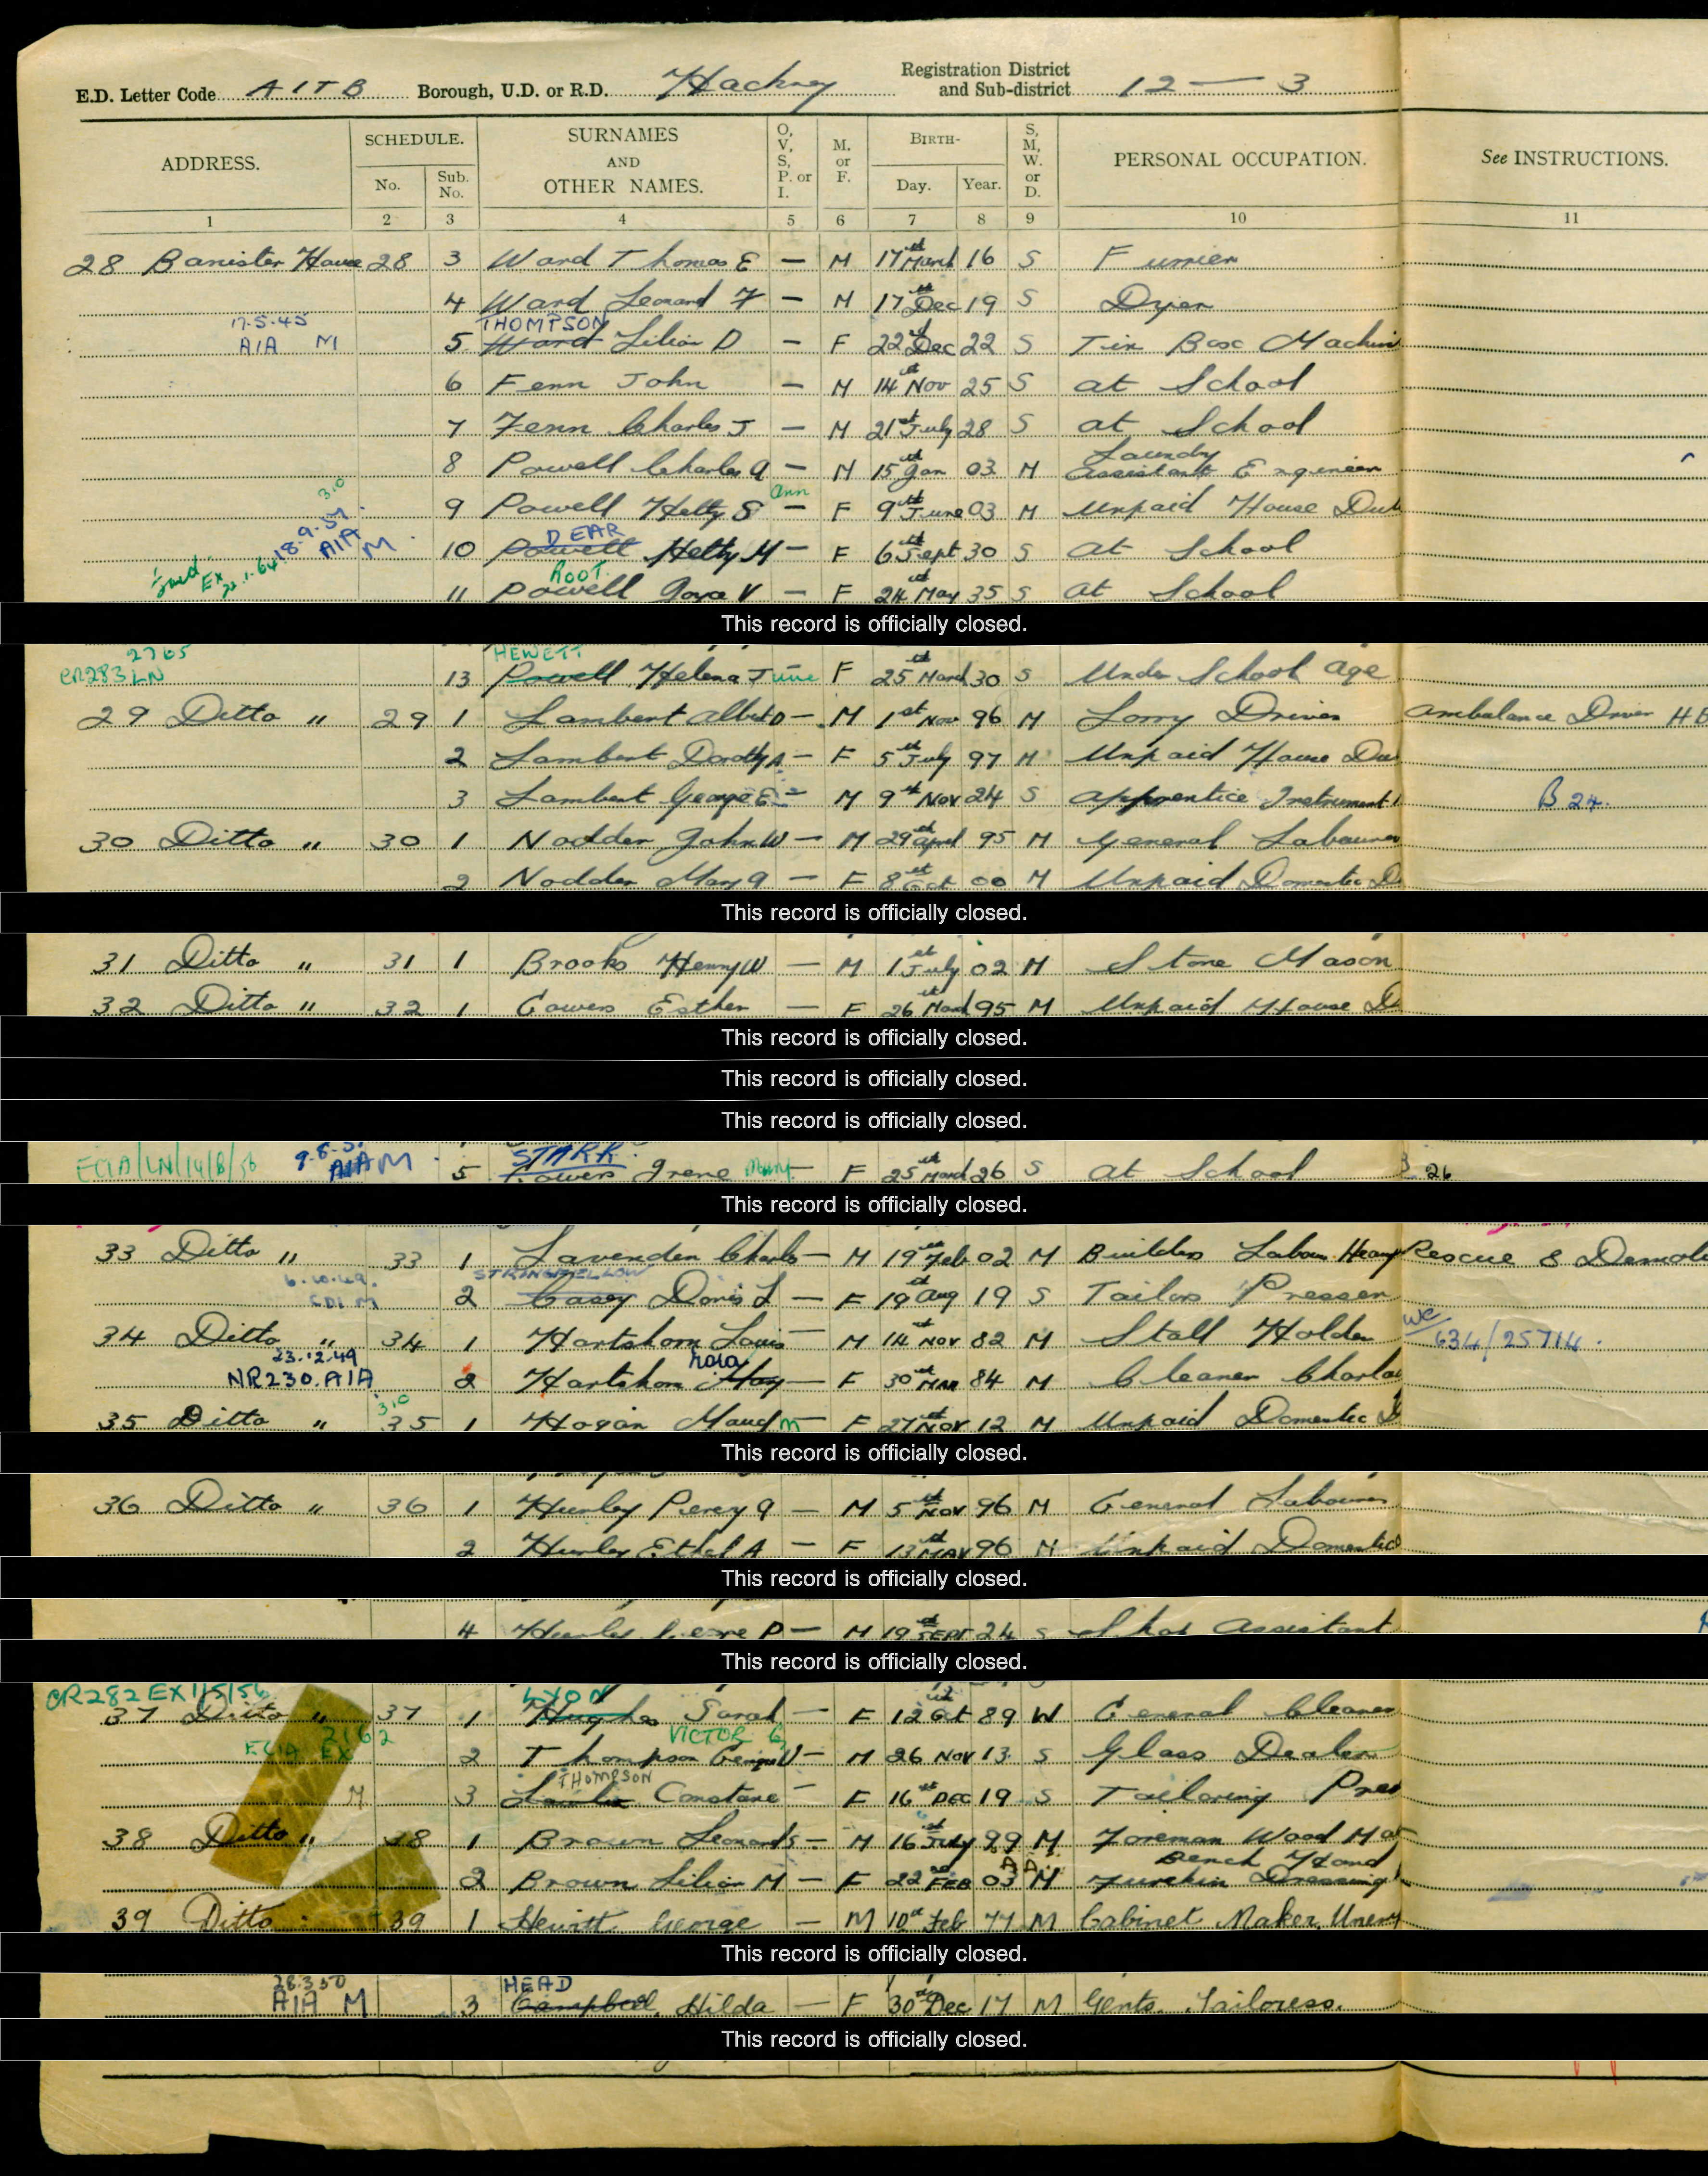 E.D. Letter Code AITB Borough, U.D. or R.D. Hackney Registration District and Sub-district 12 — 3
ADDRESS. SCHEDULE. No. Sub. No. SURNAMES AND OTHER NAMES. O, V, S, P. or I. M. or F. BIRTH- Day. Year. S, M, W. or D. PERSONAL OCCUPATION. See INSTRUCTIONS.
1 2 3 4 5 6 7 8 9 10 11
28 Banister House 28 3 Ward Thomas E — M 17th March 16 S Furrier
4 Ward Leonard F — M 17th Dec 19 S Dyer
17.5.45 THOMPSON
A1A M 5 Ward Lilian D — F 22nd Dec 22 S Tin Box Machin
6 Fenn John — M 14th Nov 25 S at School
7 Fenn Charles J — M 21st July 28 S at School
8 Powell Charles A — M 15th Jan 03 M Laundry Assistant Engineer
30 Ann
9 Powell Hetty S — F 9th June 03 M Unpaid House Dut
18.9.51 A1A M DEAR
10 Powell Hetty M — F 6th Sept 30 S at School
Ex ROOT
11 Powell Joyce V — F 24th May 35 S at School
This record is officially closed.
2765 HEWETT
CR283 LN 13 Powell Helena June F 25th March 30 S Under School age
29 Ditto " 29 1 Lambert Albert D — M 1st Nov 96 M Lorry Driver Ambulance Driver HB
2 Lambert Dorothy A — F 5th July 97 M Unpaid House Dut
3 Lambert George E — M 9th Nov 24 S Apprentice Instrument B 24.
30 Ditto " 30 1 Nodder John W — M 29th April 95 M General Labourer
2 Nodder May A — F 8th Oct 00 M Unpaid Domestic D
This record is officially closed.
31 Ditto " 31 1 Brooks Henry W — M 1st July 02 M Stone Mason
32 Ditto " 32 1 Cowers Esther — F 26th March 95 M Unpaid House Du
This record is officially closed.
This record is officially closed.
This record is officially closed.
EC1A/LN/14/8/56 A1A M STARK
5 Cowers Irene Mary — F 25th March 26 S at School 26
This record is officially closed.
33 Ditto " 33 1 Lavender Charles — M 19th Feb 02 M Builders Labour Heavy Rescue & Demol
6.10.49. STRINGFELLOW
CD1 M 2 Casey Doris L — F 19th Aug 19 S Tailors Presser
34 Ditto " 34 1 Hartshorn Louis — M 14 Nov 82 M Stall Holder WC/634/25714.
23.12.49 Rosa
NR230. A1A 2 Hartshorn May — F 30th MAR 84 M Cleaner Charlad
3,0
35 Ditto " 35 1 Hogan Maud M — F 27th Nov 12 M Unpaid Domestic D
This record is officially closed.
36 Ditto " 36 1 Hurley Percy A — M 5th Nov 96 M General Labourer
2 Hurley Ethel A — F 13th MAY 96 M Unpaid Domestic
This record is officially closed.
4 Hurley D — M 19th SEPT 24 S Shop Assistant
This record is officially closed.
CR282 EX 1/5/56 LYON
37 Ditto " 37 1 Hughes Sarah — F 12th Oct 89 W General Cleaner
EC1A EX 2162 VICTOR G
2 Thompson George V — M 26 Nov 13 S Glass Dealer
THOMPSON
M 3 Constance — F 16th DEC 19 S Tailoring Pres
38 Ditto " 38 1 Brown Leonard S — M 16th July 99 M Foreman Wood Ma
Bench Hand
2 Brown Lilian M — F 22nd FEB 03 M Dressing
39 Ditto 39 1 Hewitt George — M 10th Feb 77 M Cabinet Maker, Unem
This record is officially closed.
28.3.50 HEAD
A1A M 3 Campbell, Hilda — F 30th Dec 17 M Gents. Tailoress.
This record is officially closed.